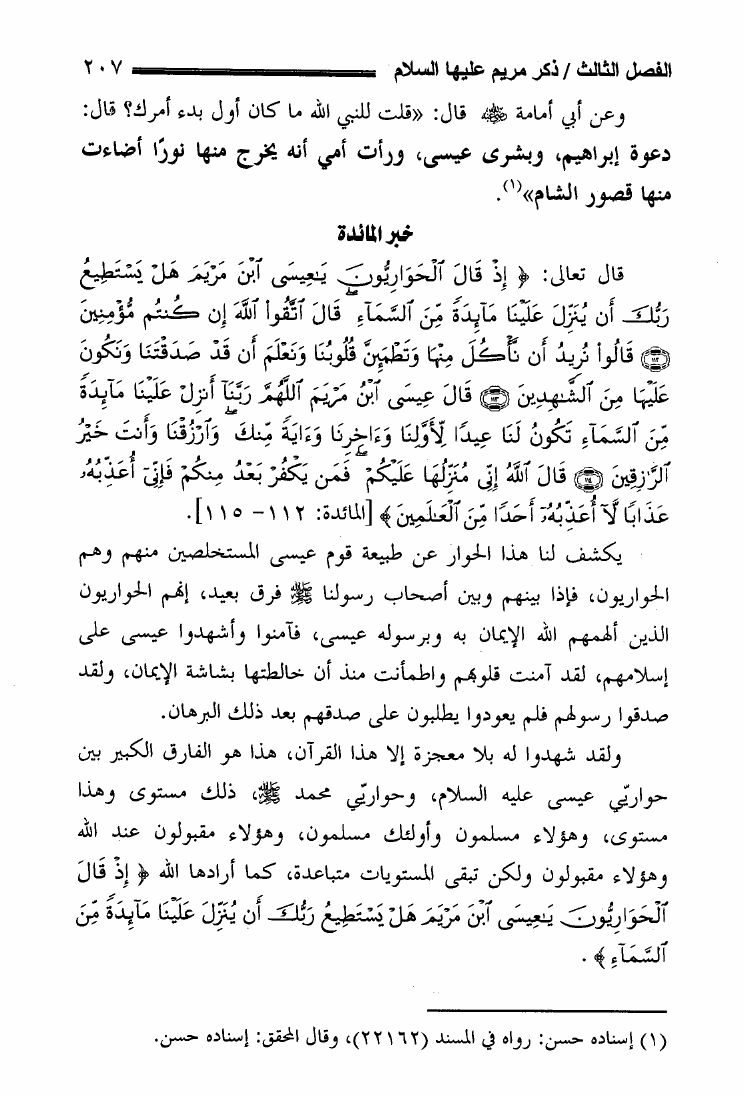 الفصل الثالث / ذكر مريم عليها السلام ٢٠٧
وعن أبي أمامة ﷺ قال: «قلت للنبي الله ما كان أول بدء أمرك؟ قال:
دعوة إبراهيم، وبشرى عيسى، ورأت أمي أنه يخرج منها نورًا أضاءت
منها قصور الشام»(١).
خبر المائدة
قال تعالى: ﴿ إِذْ قَالَ ٱلْحَوَارِيُّونَ يَـٰعِيسَى ٱبْنَ مَرْيَمَ هَلْ يَسْتَطِيعُ
رَبُّكَ أَن يُنَزِّلَ عَلَيْنَا مَآئِدَةً مِّنَ ٱلسَّمَآءِ ۖ قَالَ ٱتَّقُوا۟ ٱللَّهَ إِن كُنتُم مُّؤْمِنِينَ
۝١١٢ قَالُوا۟ نُرِيدُ أَن نَّأْكُلَ مِنْهَا وَتَطْمَئِنَّ قُلُوبُنَا وَنَعْلَمَ أَن قَدْ صَدَقْتَنَا وَنَكُونَ
عَلَيْهَا مِنَ ٱلشَّـٰهِدِينَ ۝١١٣ قَالَ عِيسَى ٱبْنُ مَرْيَمَ ٱللَّهُمَّ رَبَّنَآ أَنزِلْ عَلَيْنَا مَآئِدَةً
مِّنَ ٱلسَّمَآءِ تَكُونُ لَنَا عِيدًا لِّأَوَّلِنَا وَءَاخِرِنَا وَءَايَةً مِّنكَ ۖ وَٱرْزُقْنَا وَأَنتَ خَيْرُ
ٱلرَّٰزِقِينَ ۝١١٤ قَالَ ٱللَّهُ إِنِّى مُنَزِّلُهَا عَلَيْكُمْ ۖ فَمَن يَكْفُرْ بَعْدُ مِنكُمْ فَإِنِّىٓ أُعَذِّبُهُۥ
عَذَابًا لَّآ أُعَذِّبُهُۥٓ أَحَدًا مِّنَ ٱلْعَـٰلَمِينَ ﴾ [المائدة: ١١٢- ١١٥].
يكشف لنا هذا الحوار عن طبيعة قوم عيسى المستخلصين منهم وهم
الحواريون، فإذا بينهم وبين أصحاب رسولنا ﷺ فرق بعيد، إنهم الحواريون
الذين ألهمهم الله الإيمان به وبرسوله عيسى، فآمنوا وأشهدوا عيسى على
إسلامهم، لقد آمنت قلوبهم واطمأنت منذ أن خالطتها بشاشة الإيمان، ولقد
صدقوا رسولهم فلم يعودوا يطلبون على صدقهم بعد ذلك البرهان.
ولقد شهدوا له بلا معجزة إلا هذا القرآن، هذا هو الفارق الكبير بين
حواريّي عيسى عليه السلام، وحواريّي محمد ﷺ، ذلك مستوى وهذا
مستوى، وهؤلاء مسلمون وأولئك مسلمون، وهؤلاء مقبولون عند الله
وهؤلاء مقبولون ولكن تبقى المستويات متباعدة، كما أرادها الله ﴿ إِذْ قَالَ
ٱلْحَوَارِيُّونَ يَـٰعِيسَى ٱبْنَ مَرْيَمَ هَلْ يَسْتَطِيعُ رَبُّكَ أَن يُنَزِّلَ عَلَيْنَا مَآئِدَةً مِّنَ
ٱلسَّمَآءِ ﴾ .
(١) إسناده حسن: رواه في المسند (٢٢١٦٢)، وقال المحقق: إسناده حسن.